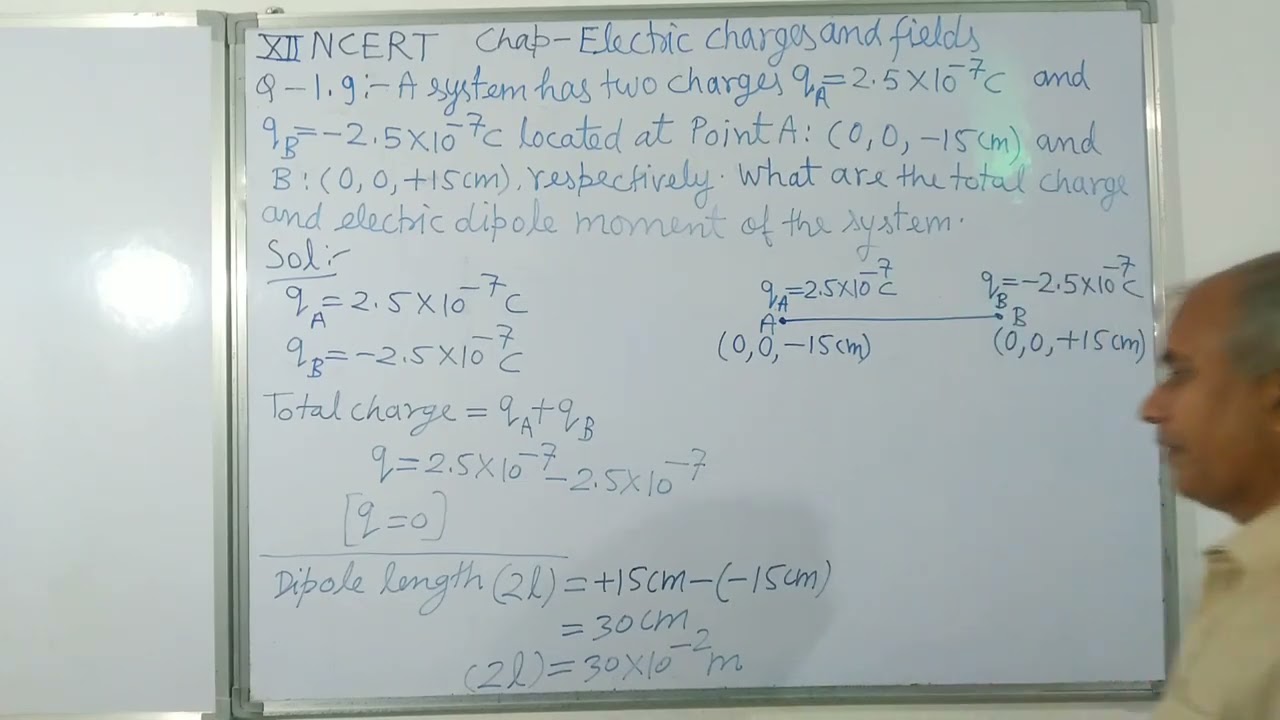 XII NCERT Chap- Electric charges and fields
Q-1.9:- A system has two charges q_A = 2.5×10⁻⁷C and
q_B = -2.5×10⁻⁷C located at Point A: (0, 0, -15cm) and
B: (0, 0, +15cm), respectively. What are the total charge
and electric dipole moment of the system.
Sol:-
q_A = 2.5×10⁻⁷C
q_B = -2.5×10⁻⁷C
q_A = 2.5×10⁻⁷C
q_B = -2.5×10⁻⁷C
A
B
(0, 0, -15cm)
(0, 0, +15cm)
Total charge = q_A + q_B
q = 2.5×10⁻⁷ - 2.5×10⁻⁷
[q = 0]
Dipole length (2l) = +15cm - (-15cm)
= 30cm
(2l) = 30×10⁻²m